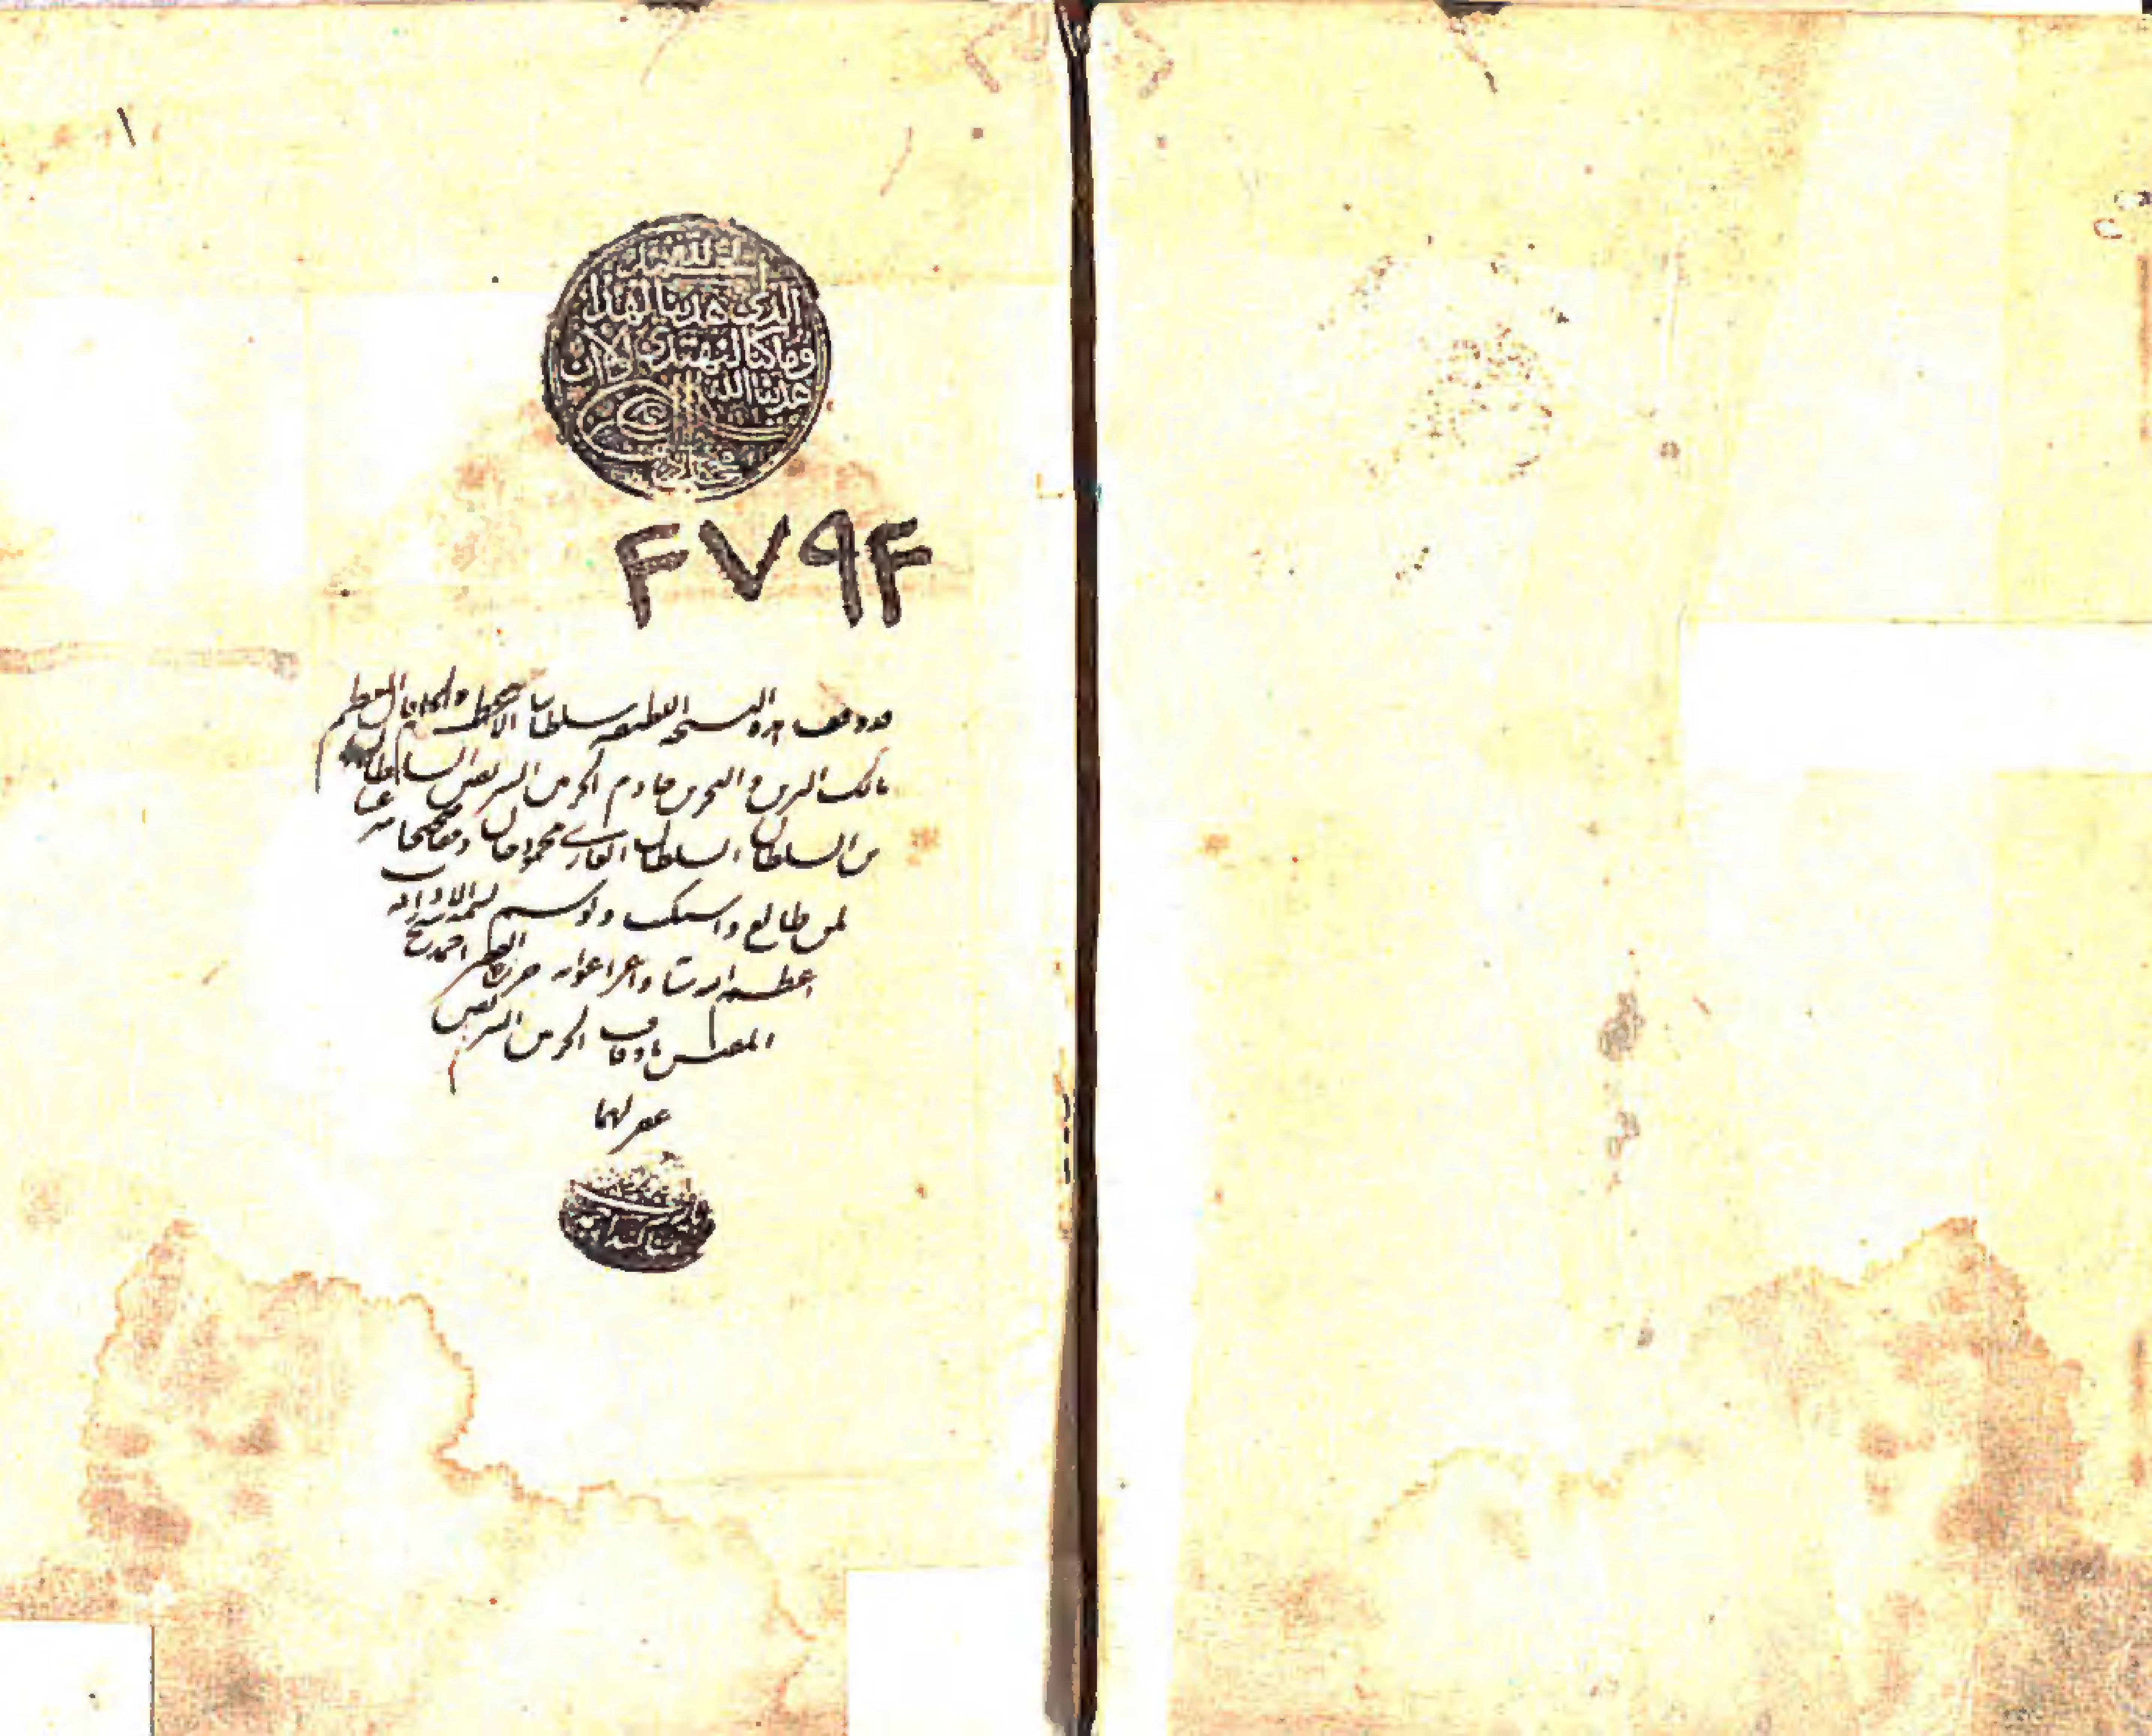 ١
الحمد لله
الذي هدينا لهذا
وما كنا لنهتدي لولا ان
هدينا الله
٤٧٩٤
قد وقف هذه النسخة سلطاننا الاعظم والخاقان المعظم
مالك البرين والبحرين خادم الحرمين الشريفين السلطان
بن السلطان السلطان الغازي محمود خان وقفا صحيحا شرعيا
لمن طالع
واعز اعوانه حرره الفقير احمد شيخ
المفتش باوقاف الحرمين الشريفين
غفر لهما